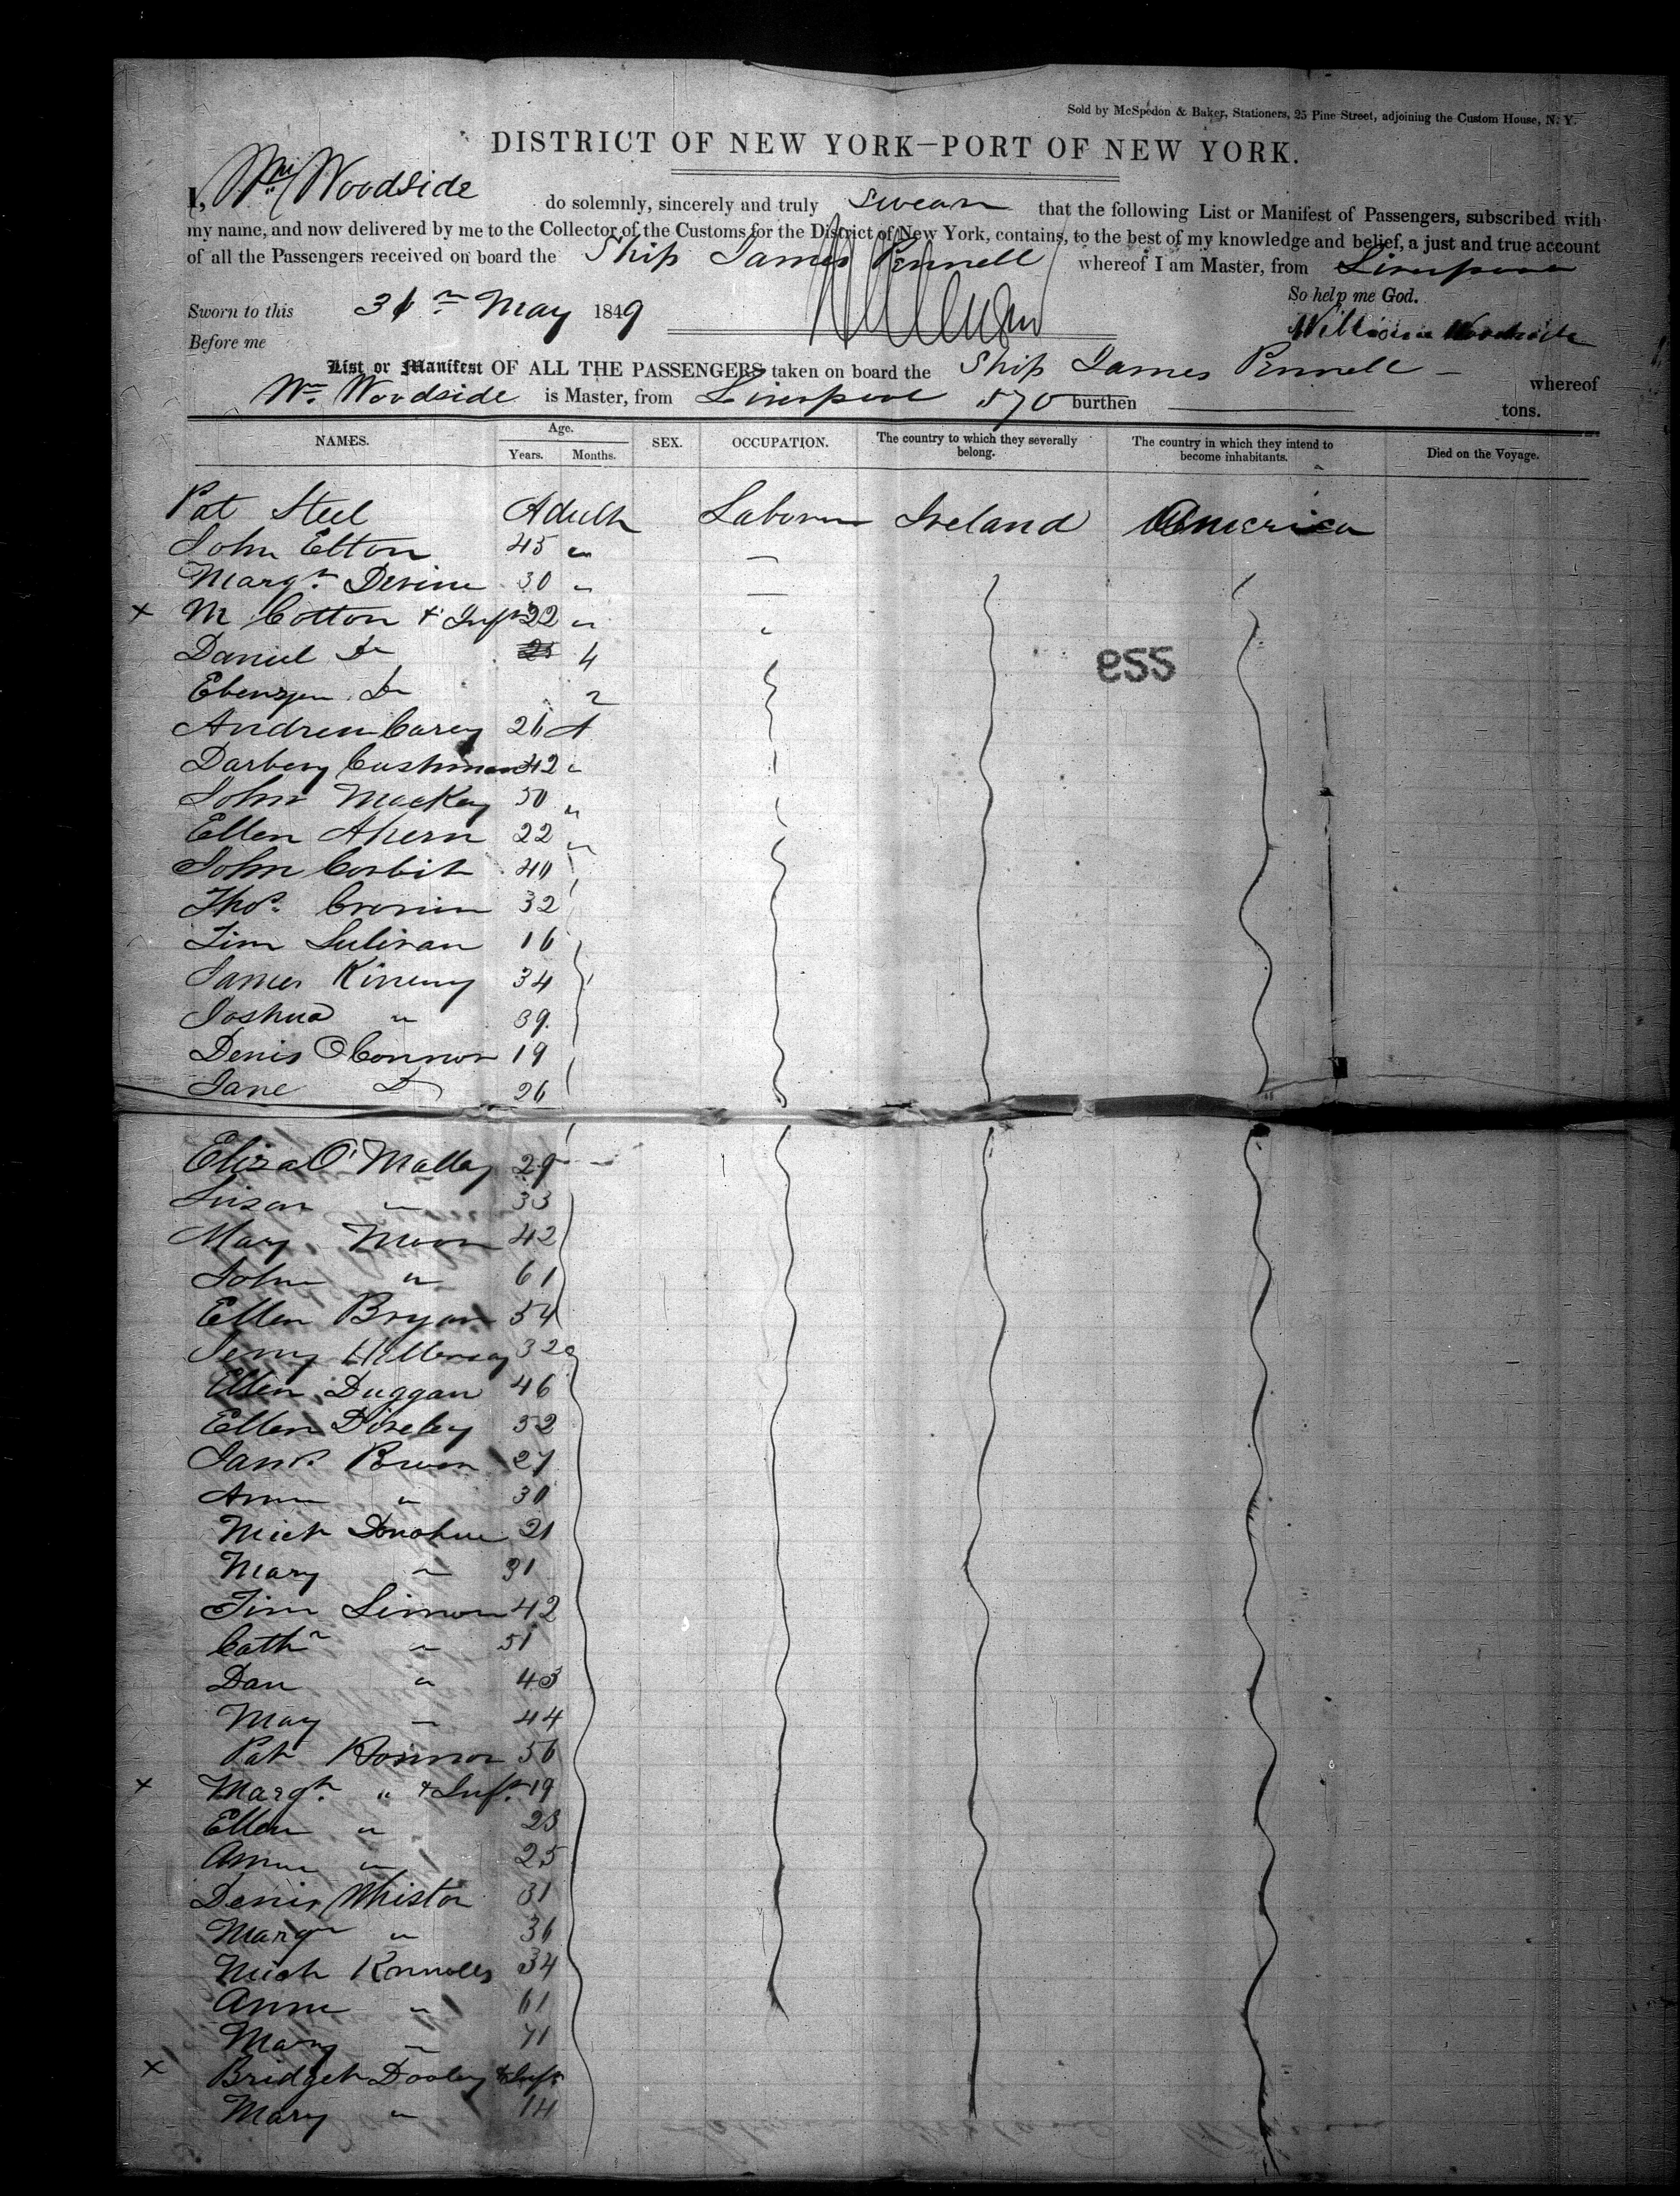 Sold by McSpedon & Baker, Stationers, 25 Pine Street, adjoining the Custom House, N. Y.
DISTRICT OF NEW YORK—PORT OF NEW YORK.
I, Wm Woodside do solemnly, sincerely and truly swear that the following List or Manifest of Passengers, subscribed with
my name, and now delivered by me to the Collector of the Customs for the District of New York, contains, to the best of my knowledge and belief, a just and true account
of all the Passengers received on board the Ship James Pennell whereof I am Master, from Liverpool
So help me God.
Sworn to this 31st May 1849
William Woodside
Before me
List or Manifest OF ALL THE PASSENGERS taken on board the Ship James Pennell — whereof
Wm. Woodside is Master, from Liverpool 570 burthen tons.
NAMES. Age. Years. Months. SEX. OCCUPATION. The country to which they severally belong. The country in which they intend to become inhabitants. Died on the Voyage.
Pat Steel Adult Laborer Ireland America
John Elton 45 "
Margt. Devine 30 "
x M Cotton & Inft 22 "
Daniel Do 4
955
Ebenzer Do 2
Andrew Carey 26 A
Darbey Cushman 42 "
John Mackey 50 "
Ellen Ahern 22 "
John Corbit 40
Thos. Cronin 32
Tim Sulivan 16
James Kineny 34
Joshua " 39
Denis OConnor 19
Jane Do 26
Eliza O'Malley 29
Susan " 33
Mary Moon 42
John " 61
Ellen Bryan 54
Jerry 32
Ellen Duggan 46
Ellen 52
Jams. 27
Anne " 30
Mick Donohue 21
Mary " 31
Tim 42
Cathn " 51
Dan " 43
May " 44
Pat Konnor 56
x Margt. " & Inft. 19
Ellen " 23
Anne " 25
Denis Whiston 31
Margt " 36
Mich Knnolls 34
Anne " 61
Mary " 71
x Bridget Dooley & Inft
Mary " 14